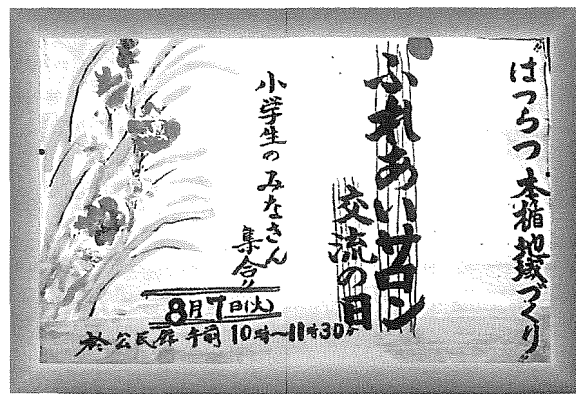 はつらつ本楯地域づくり
ふれあいサロン
交流の日
小学生のみなさん
集合!!
8月7日(火)
於公民館 午前10時〜11時30分